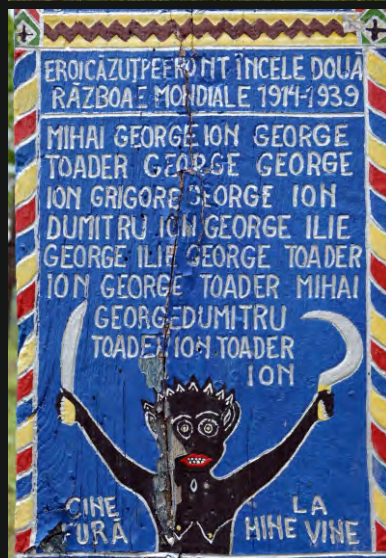 EROI CĂZUȚ PE FRONT ÎN CELE DOUĂ
RĂZBOAE MONDIALE 1914-1939
MIHAI GEORGE ION GEORGE
TOADER GEORGE GEORGE
ION GRIGORE GEORGE ION
DUMITRU ION GEORGE ILIE
GEORGE ILIE GEORGE TOADER
ION GEORGE TOADER MIHAI
GEORGE DUMITRU
TOADER ION TOADER
ION
CINE
FURĂ
LA
MINE VINE